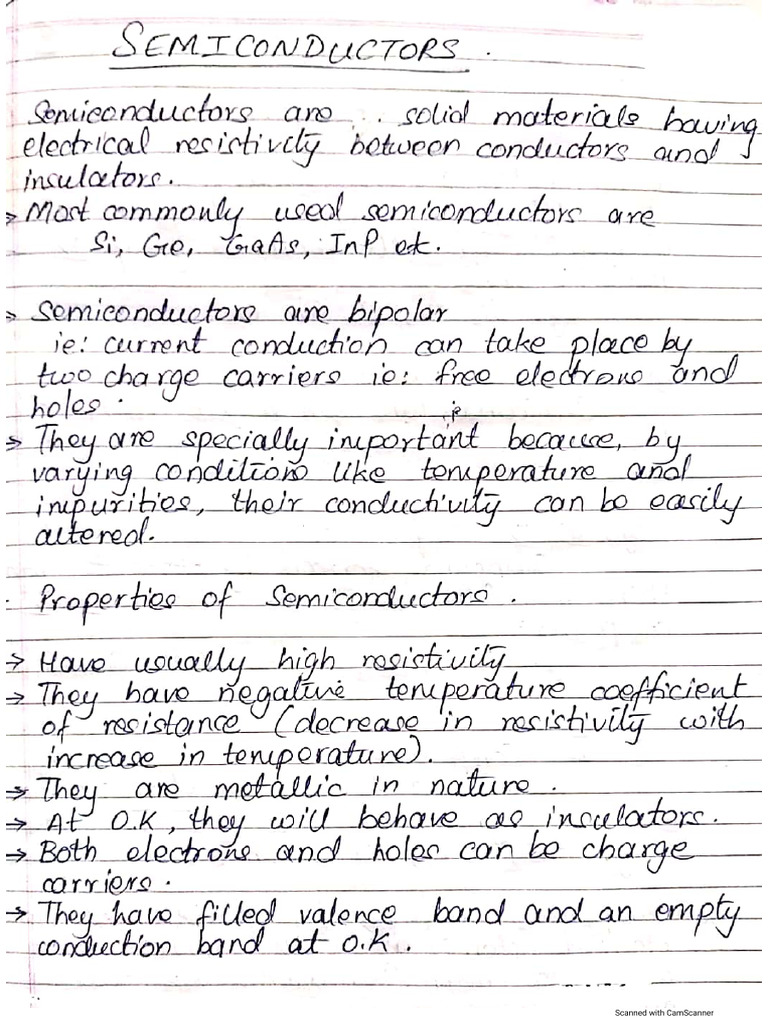 SEMICONDUCTORS.
Semiconductors are .. solid materials having
electrical resistivity between conductors and
insulators.
→ Most commonly used semiconductors are
Si, Ge, GaAs, InP etc.
→ Semiconductors are bipolar
ie: current conduction can take place by
two charge carriers ie: free electrons and
holes.
ie
→ They are specially important because, by
varying conditions like temperature and
impurities, their conductivity can be easily
altered.
. Properties of Semiconductors.
→ Have usually high resistivity
→ They have negative temperature coefficient
of resistance (decrease in resistivity with
increase in temperature).
→ They are metallic in nature.
→ At O.K, they will behave as insulators.
→ Both electrons and holes can be charge
carriers.
→ They have filled valence band and an empty
conduction band at O.K.
Scanned with CamScanner